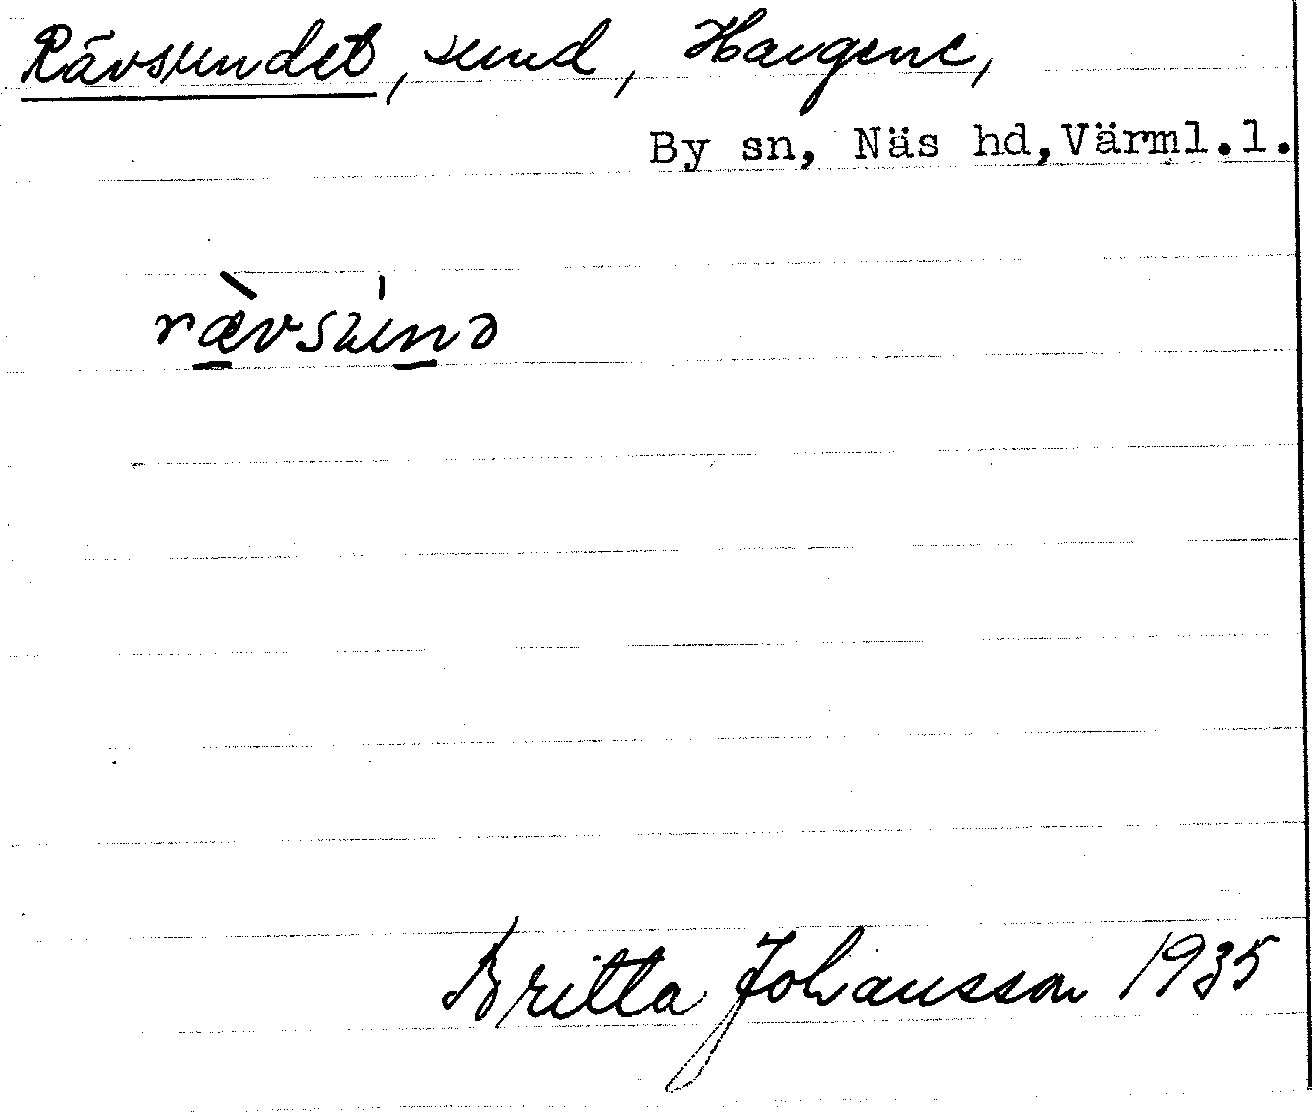 Rävsundet, sund, Haugene,
By sn, Näs hd, Värml.l.
rævsunə
Britta Johansson 1935